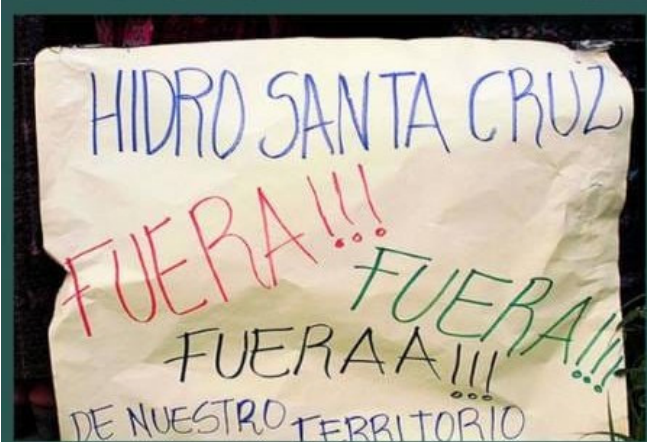 HIDRO SANTA CRUZ
FUERA!!!
FUERA!!!
FUERAA!!!
DE NUESTRO TERRITORIO